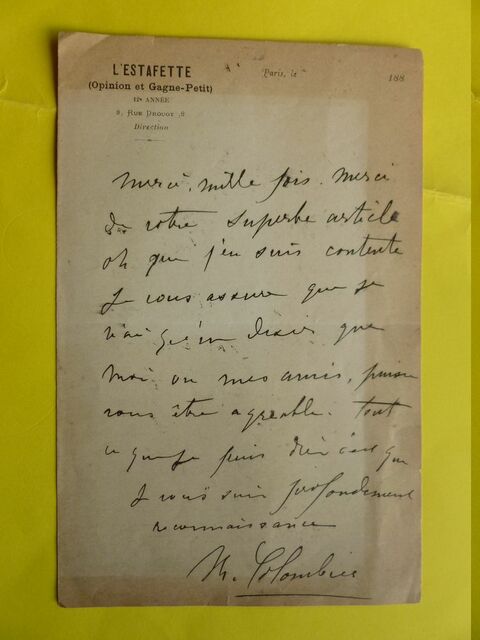 L'ESTAFETTE
(Opinion et Gagne-Petit)
12e ANNÉE
9, RUE DROUOT, 9
Direction
Paris, le 188
Merci, mille fois. merci
de votre superbe article
oh que j'en suis contente
Je vous assure que je
n'ai qu'un desir que
moi ou mes amis, puisse
vous être agreable. tout
ce que je puis dire c'est que
je vous suis profondement
reconnaissance
M. Colombier